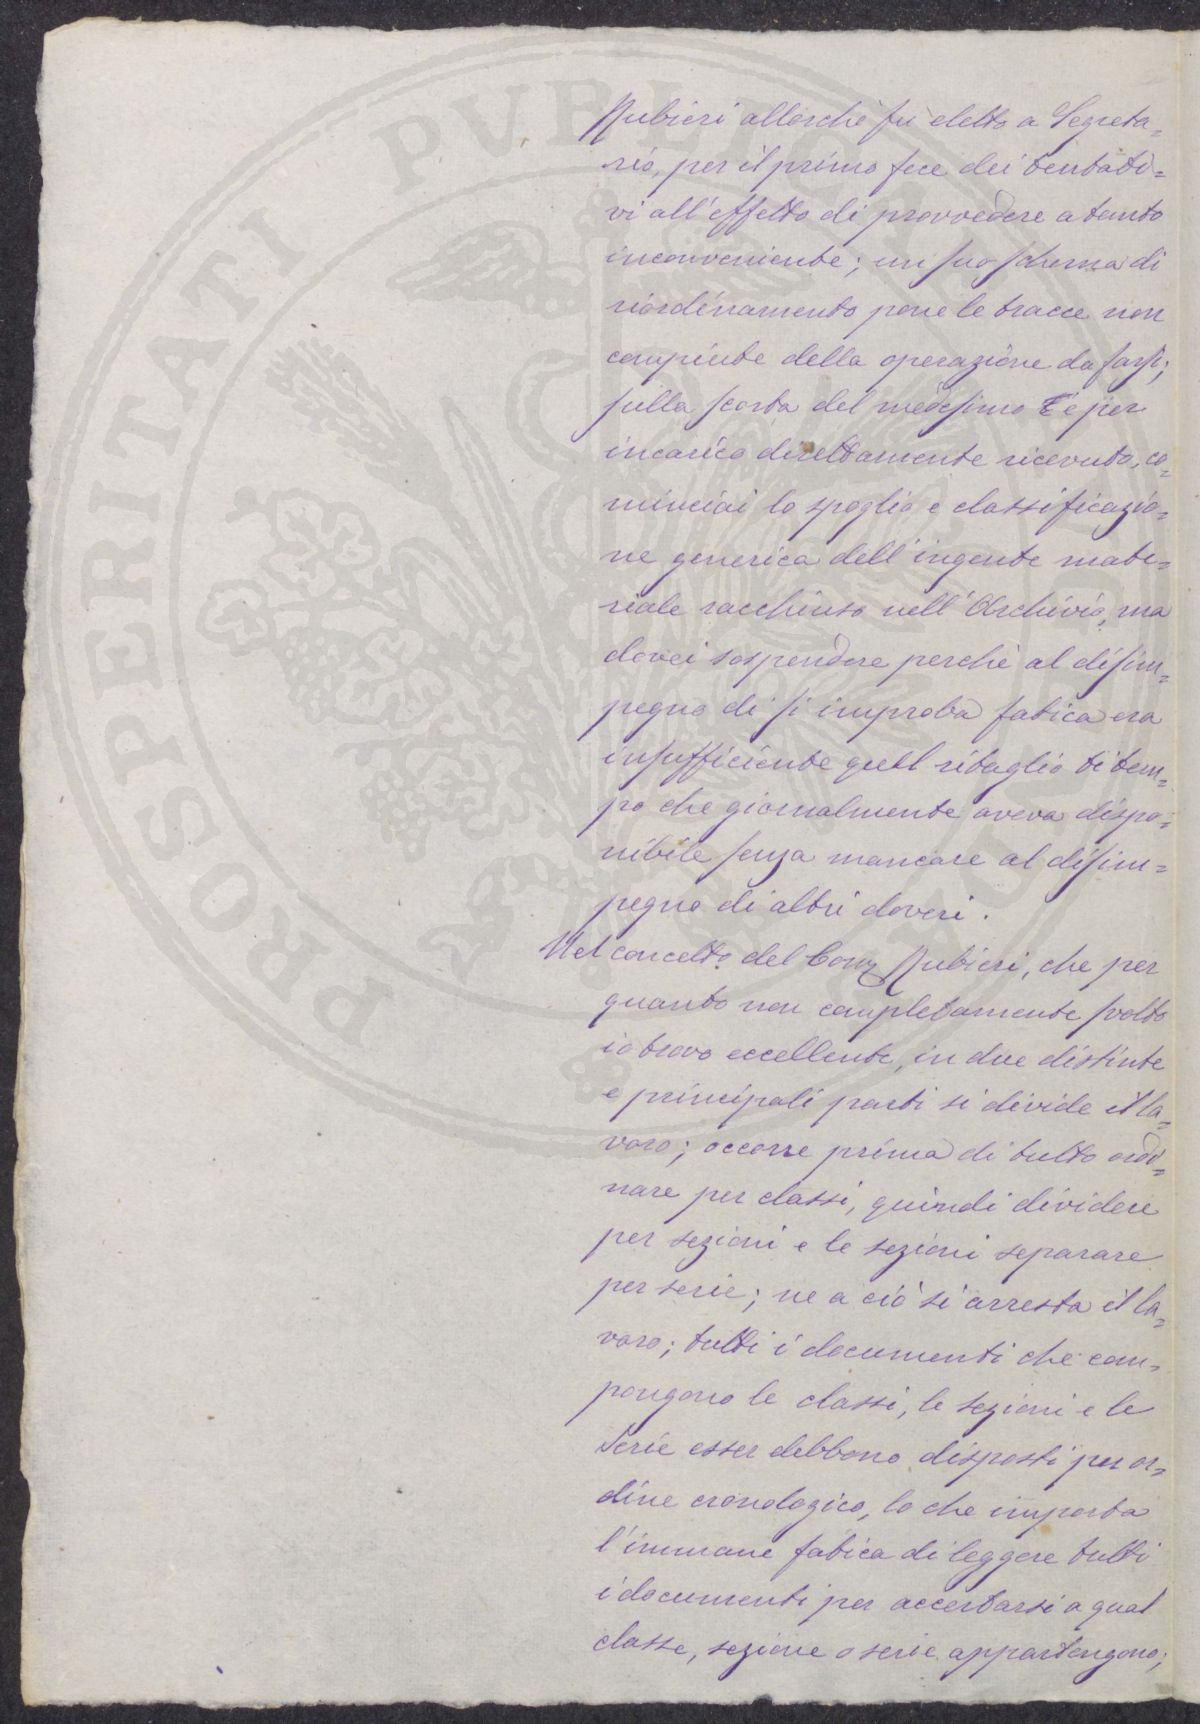 Rubieri allorchè fù eletto a Segreta=
rio, per il primo fece dei tentati=
vi all'effetto di provvedere a tanto
inconveniente; un suo schema di
riordinamento pone le tracce non
compiute della operazione da farsi;
sulla scorta del medesimo E e per
incarico direttamente ricevuto, co=
minciai lo spoglio e classificazio=
ne generica dell'ingente mate=
riale racchiuso nell'Archivio, ma
dovei sospendere perchè al disim=
pegno di sì improba fatica era
insufficiente quell ritaglio di tem=
po che giornalmente aveva dispo=
nibile senza mancare al disim=
pegno di altri doveri.
Nel concetto del Comm Rubieri, che per
quanto non completamente svolto
io trovo eccellente, in due distinte
e principali parti si divide il la=
voro; occorre prima di tutto ordi=
nare per classi, quindi dividere
per sezioni e le sezioni separare
per serie; ne a ciò si arresta il la=
voro; tutti i documenti che com=
pongono le classi, le sezioni e le
serie esser debbono disposti per or=
dine cronologico, lo che importa
l'immane fatica di leggere tutti
i documenti per accertarsi a qual
classe, sezione o serie appartengono;
PROSPERITATI PVBLICAE